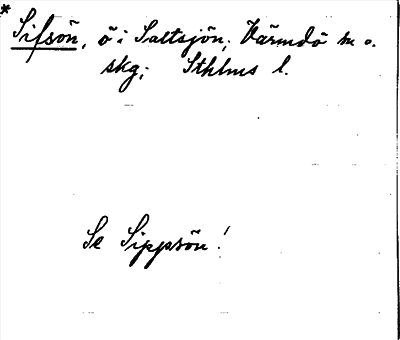 * Sifsön, ö i Saltsjön; Värmdö n o.
skg; Sthlms l.
Se Sippsön!